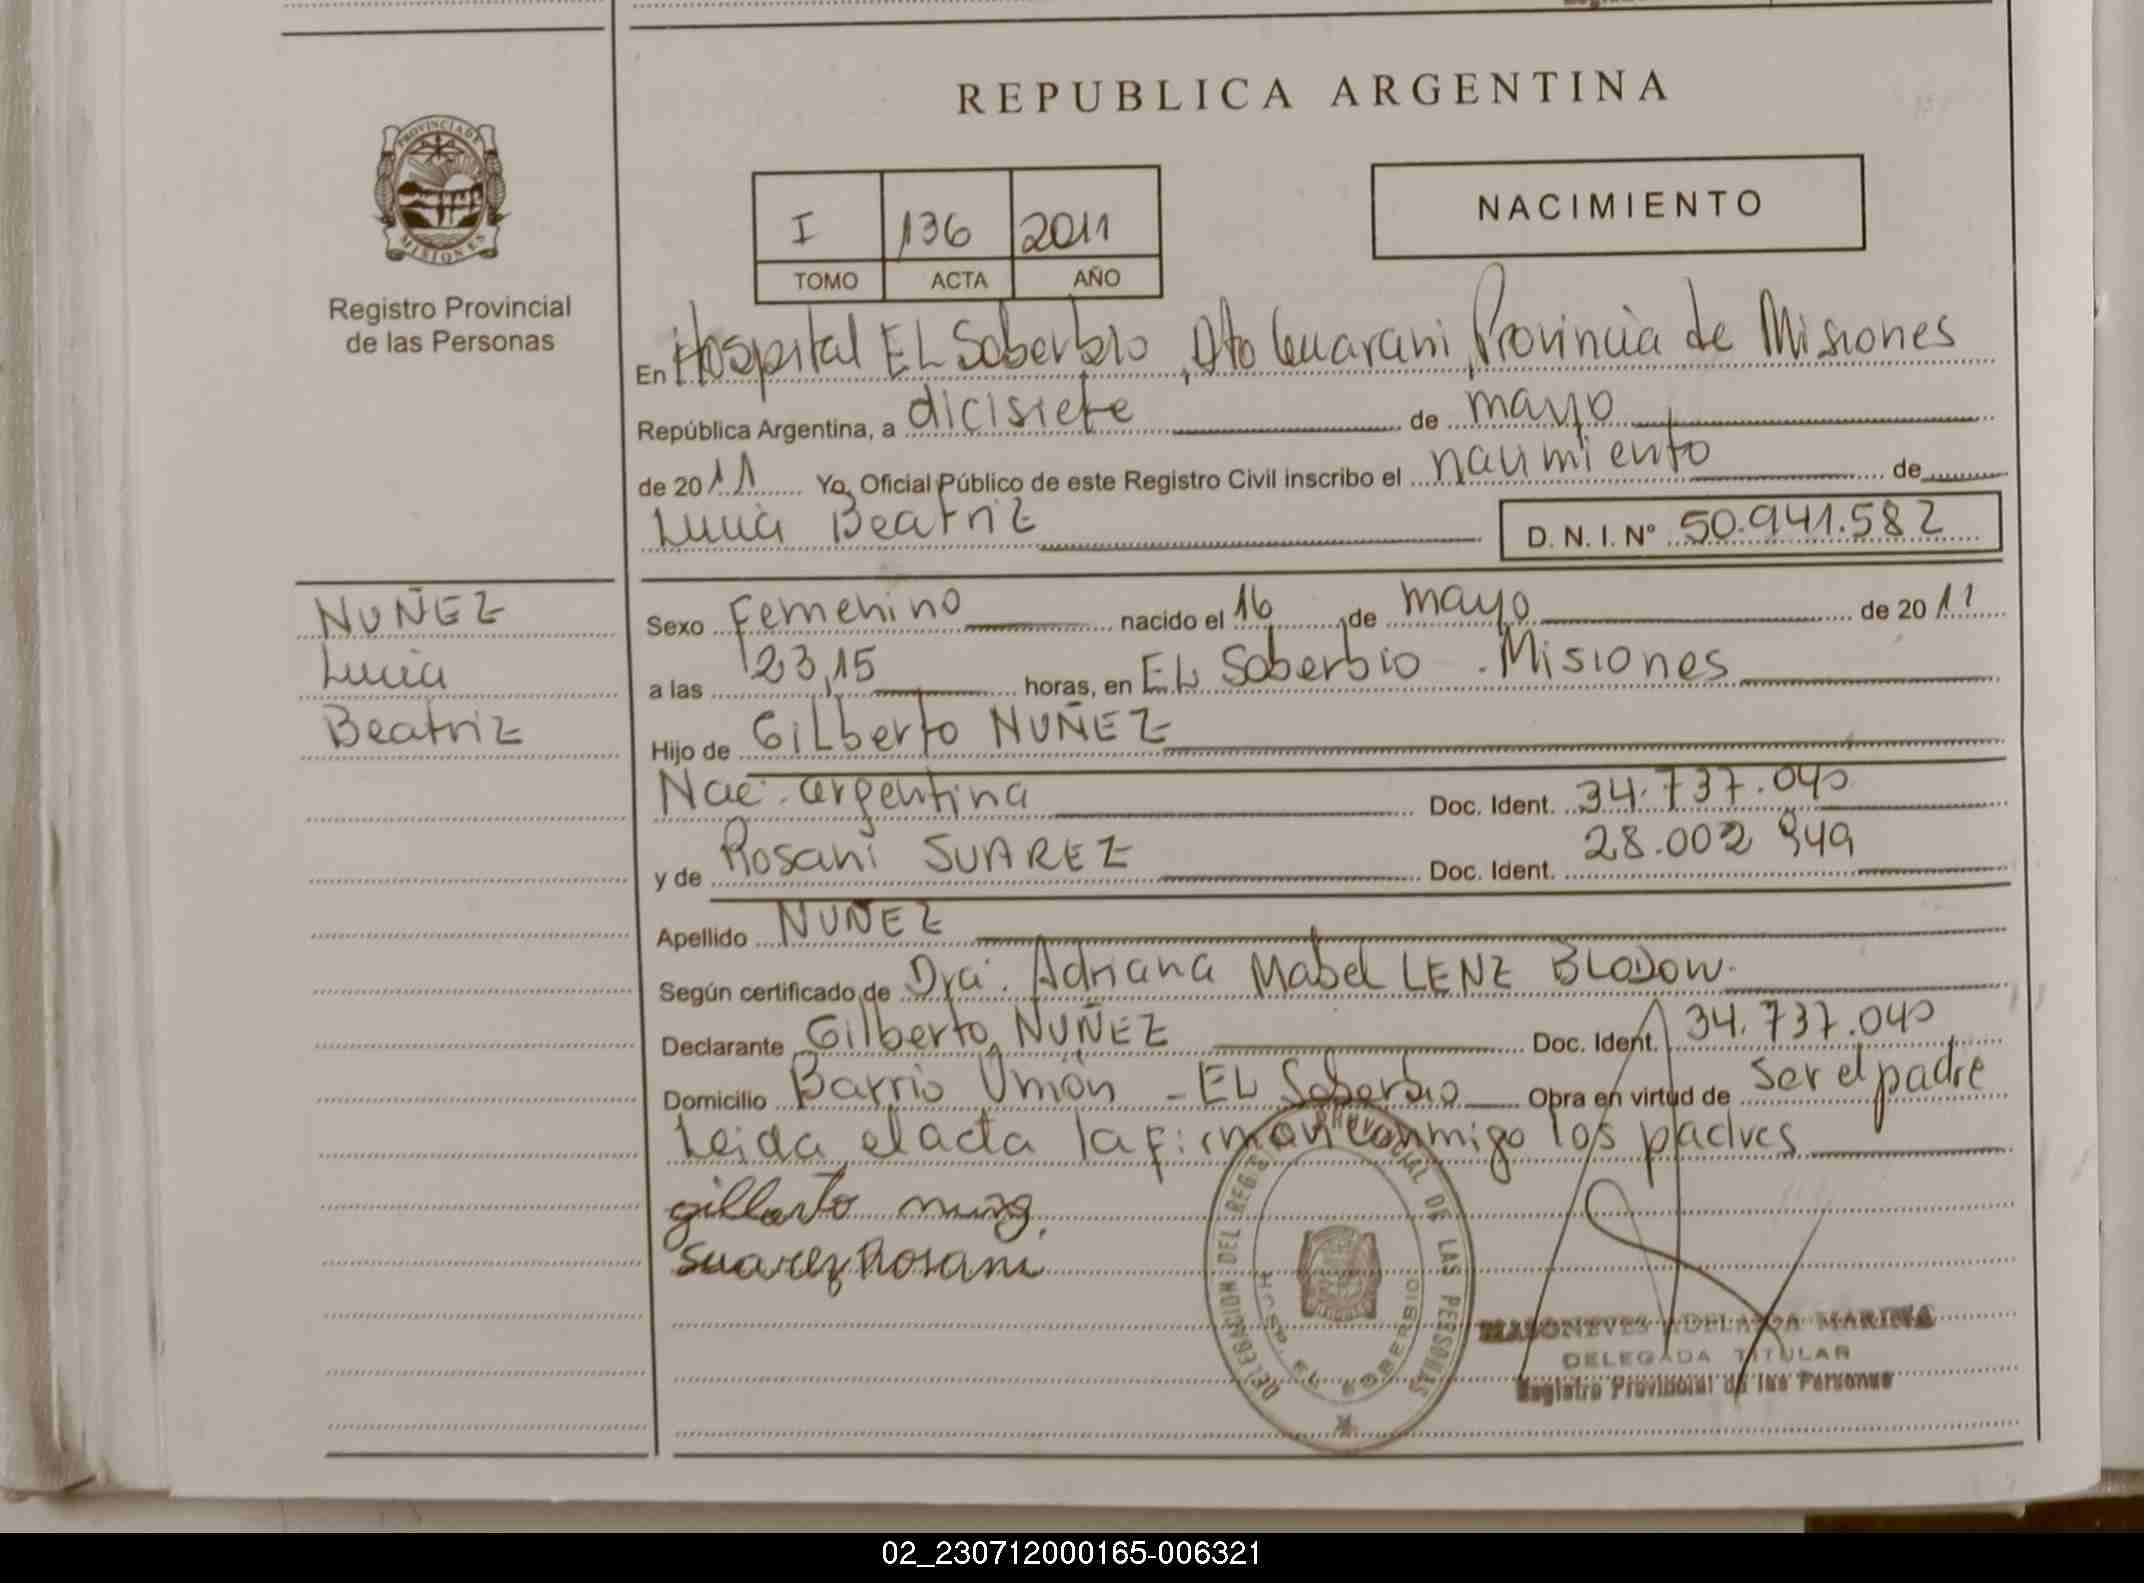 REPUBLICA ARGENTINA
PROVINCIA DE
MISIONES
Registro Provincial
de las Personas
I 136 2011
TOMO ACTA AÑO
NACIMIENTO
En Hospital EL Soberbio, Dto Guarani, Provincia de Misiones
República Argentina, a dicisiete de mayo
de 2011 Yo, Oficial Público de este Registro Civil inscribo el nacimiento de
Lucia Beatriz D. N. I. Nº 50.941.582
NUÑEZ
Lucia
Beatriz
Sexo Femenino nacido el 16 de mayo de 2011
a las 23,15 horas, en EL Soberbio . Misiones
Hijo de Gilberto NUÑEZ
Nac. argentina Doc. Ident. 34.737.040
y de Rosani SUAREZ Doc. Ident. 28.002 949
Apellido NUÑEZ
Según certificado de Dra. Adriana Mabel LENZ BLODOW.
Declarante Gilberto NUÑEZ Doc. Ident. 34.737.040
Domicilio Barrio Unión - EL Soberbio Obra en virtud de Ser el padre
Leida el acta la firman conmigo los padres
gilberto nuñez
Suarez Rosani
DELEGACION DEL REGISTRO PROVINCIAL DE LAS PERSONAS
HOSP. EL SOBERBIO
MARINA
DELEGADA TITULAR
Registro Provincial de las Personas
02_230712000165-006321